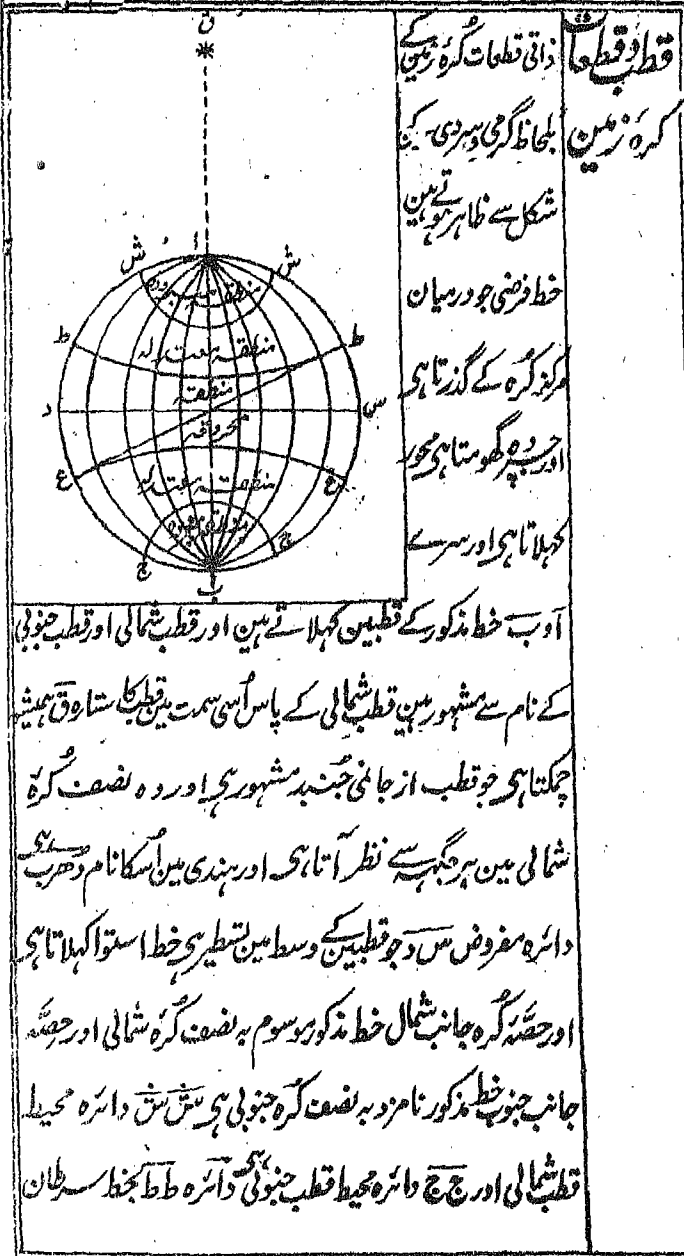 قطب وقطعات
کرۂ زمین
ذاتی قطعات کرۂ زمین کے
بلحاظ گرمی و سردی
شکل سے ظاہر ہوتے ہین
خط فرضی جو درمیان
مرکز کرہ کے گذرتا ہی
اور جسپر وہ گھومتا ہی محور
کہلاتا ہی اور سرے
آ و ب خط مذکور کے قطبین کہلاتے ہین اور قطب شمالی اور قطب جنوبی
کے نام سے مشہور ہین قطب شمالی کے پاس اُسی سمت مین قطب کا ستارہ ق ہمیشہ
چمکتا ہی جو قطب از جا نمی جنبد مشہور ہی اور وہ نصف کُرۂ
شمالی مین ہر جگہہ سے نظر آتا ہی اور ہندی مین اُسکا نام دُھرب ہی
دائرہ مفروض س د جو قطبین کے وسط مین ہی خط استوا کہلاتا ہی
اور حصّۂ کُرہ جانب شمال خط مذکور موسوم بہ نصف کُرۂ شمالی اور حصّہ
جانب جنوب خط مذکور نامزد بہ نصف کُرہ جنوبی ہی ش ش دائرہ محیط
قطب شمالی اور ج ج دائرہ محیط قطب جنوبی ہی دائرہ ط ط بخط سرطان
ق
أ
ش
ش
منطقہ مبرودہ
ط
ط
منطقہ معتدلہ
منطقہ
د
س
محروقہ
ع
ع
منطقہ معتدلہ
منطقہ مبرودہ
ج
ج
ب